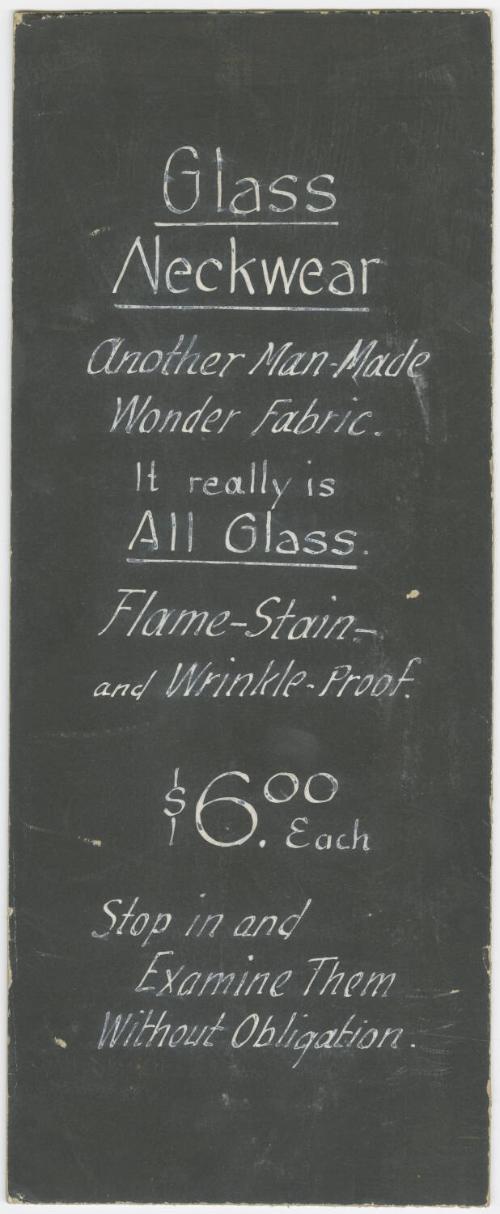 Glass
Neckwear
Another Man-Made
Wonder Fabric.
It really is
All Glass.
Flame-Stain-
and Wrinkle-Proof.
$6.00 Each
Stop in and
Examine Them
Without Obligation.